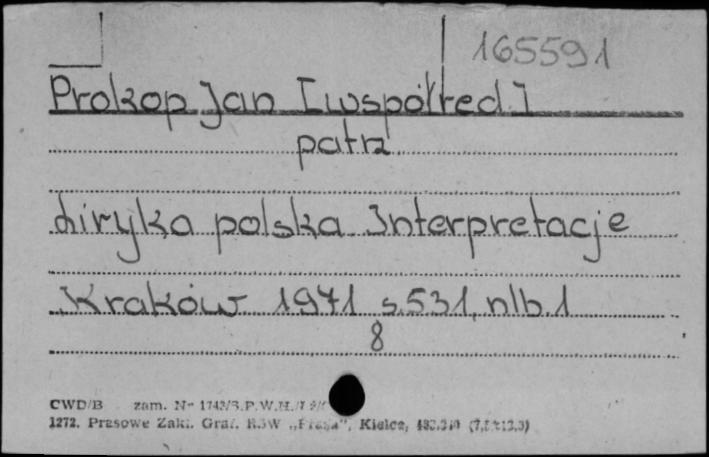 165591
Prokop Jan [współred.]
patrz
Liryka polska Interpretacje
Kraków 1971 s.531, nlb.1
8
CWD/B zam. Nr 1743/S.P.W.H.
1272. Prasowe Zakł. Graf. RSW „Prasa", Kielce,